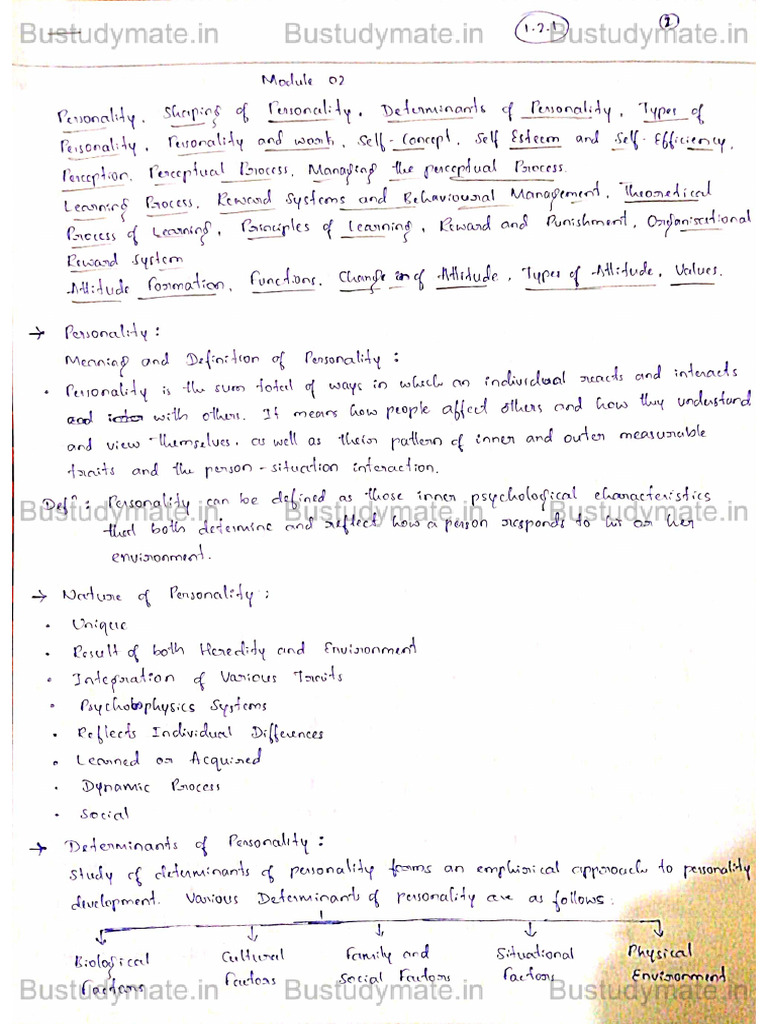 Bustudymate.in Bustudymate.in Bustudymate.in
1.2.1 2
Module 02
Personality, Shaping of Personality, Determinants of Personality, Types of
Personality, Personality and work, Self-Concept, Self Esteem and Self-Efficiency,
Perception, Perceptual Process, Managing the perceptual Process.
Learning Process, Reward Systems and Behavioural Management, Theoretical
Process of Learning, Principles of Learning, Reward and Punishment, Organisational
Reward System
Attitude Formation, Functions, Change in of Attitude, Types of Attitude, Values.
→ Personality :
Meaning and Definition of Personality :
• Personality is the sum total of ways in which an individual reacts and interacts
and inter with others. It means how people affect others and how they understand
and view themselves, as well as their pattern of inner and outer measurable
traits and the person - situation interaction.
Defⁿ : Personality can be defined as those inner psychological characteristics
Bustudymate.in Bustudymate.in Bustudymate.in
that both determine and reflect how a person responds to his or her
environment.
→ Nature of Personality :
• Unique
• Result of both Heredity and Environment
• Integration of Various Traits
• Psychophysics Systems
• Reflects Individual Differences
• Learned or Acquired
• Dynamic Process
• Social
→ Determinants of Personality :
Study of determinants of personality forms an emphirical approach to personality
development. Various Determinants of personality are as follows :
Biological Cultural Family and Situational Physical
Factors Factors Social Factors Factors Environment
Bustudymate.in Bustudymate.in Bustudymate.in